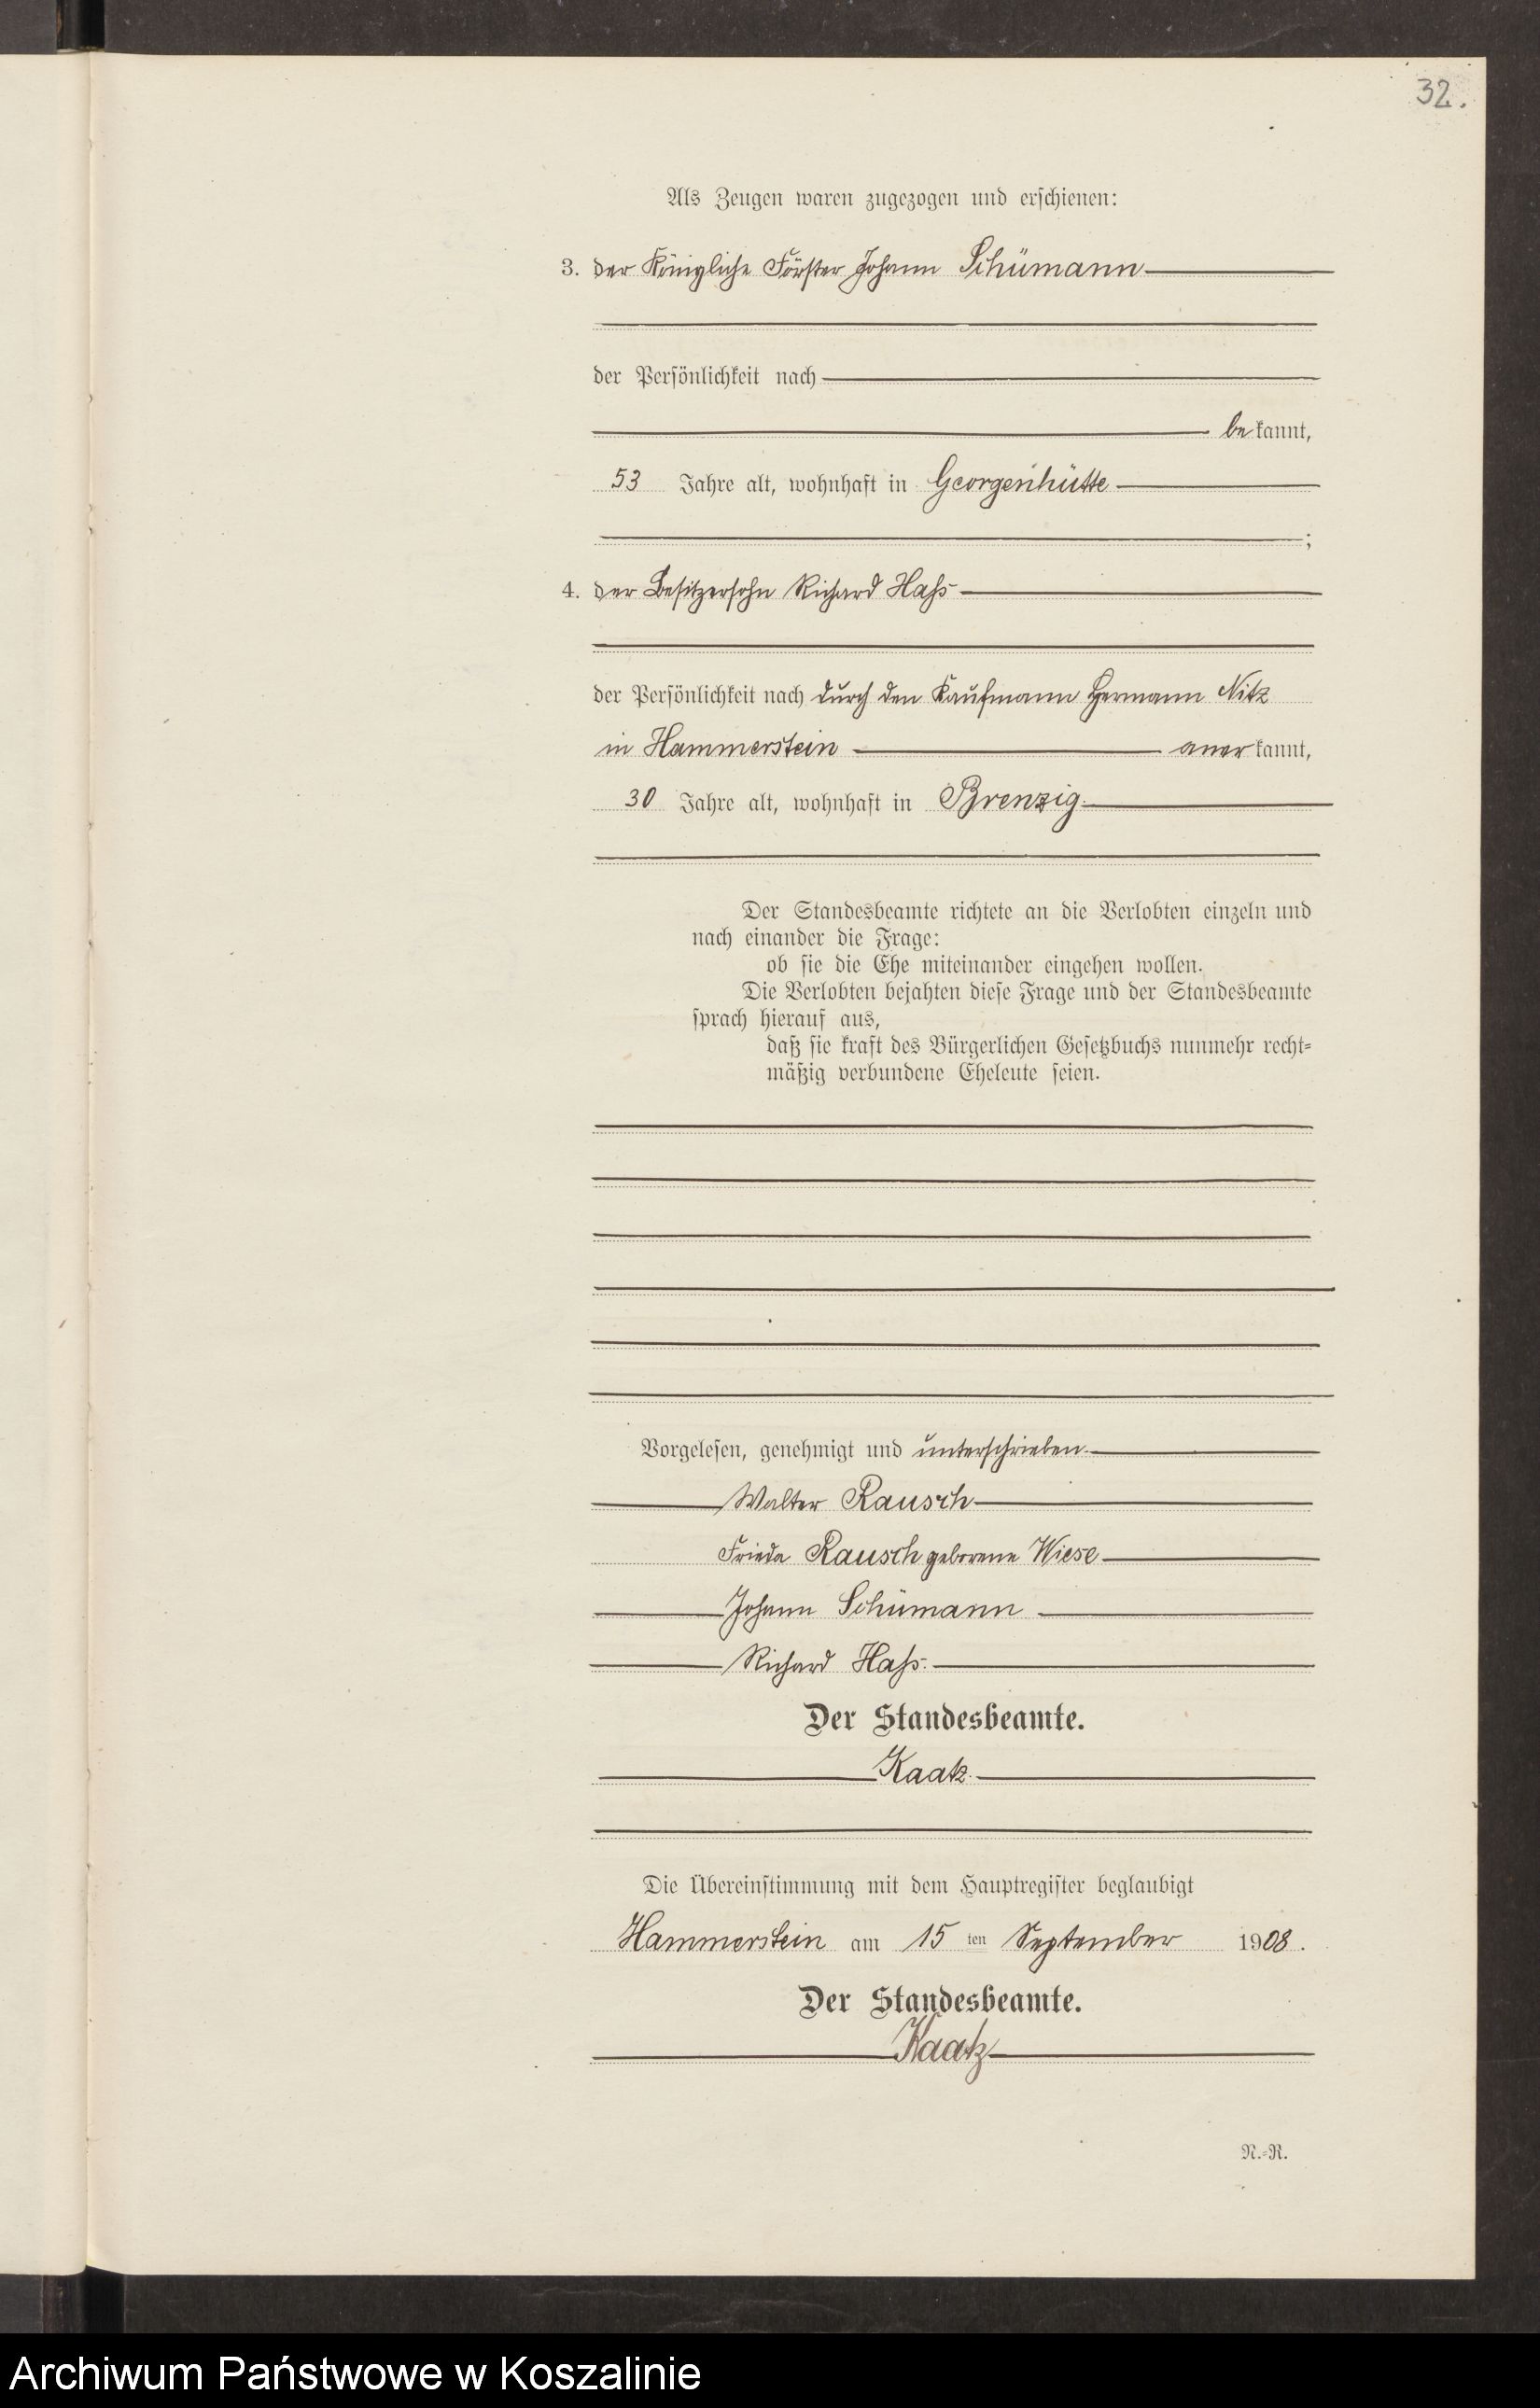 32.
Als Zeugen waren zugezogen und erschienen:
3. der Königliche Förster Johann Schümann
der Persönlichkeit nach
bekannt,
53 Jahre alt, wohnhaft in Georgenhütte
;
4. der Besitzersohn Richard Haß
der Persönlichkeit nach durch den Kaufmann Hermann Nitz
in Hammerstein anerkannt,
30 Jahre alt, wohnhaft in Brenzig
Der Standesbeamte richtete an die Verlobten einzeln und
nach einander die Frage:
ob sie die Ehe miteinander eingehen wollen.
Die Verlobten bejahten diese Frage und der Standesbeamte
sprach hierauf aus,
daß sie kraft des Bürgerlichen Gesetzbuchs nunmehr recht-
mäßig verbundene Eheleute seien.
Vorgelesen, genehmigt und unterschrieben
Walter Rausch
Frieda Rausch geborene Wiese
Johann Schümann
Richard Haß.
Der Standesbeamte.
Kaatz.
Die Übereinstimmung mit dem Hauptregister beglaubigt
Hammerstein am 15 ten September 1908.
Der Standesbeamte.
Kaatz
N.-R.
Archiwum Państwowe w Koszalinie